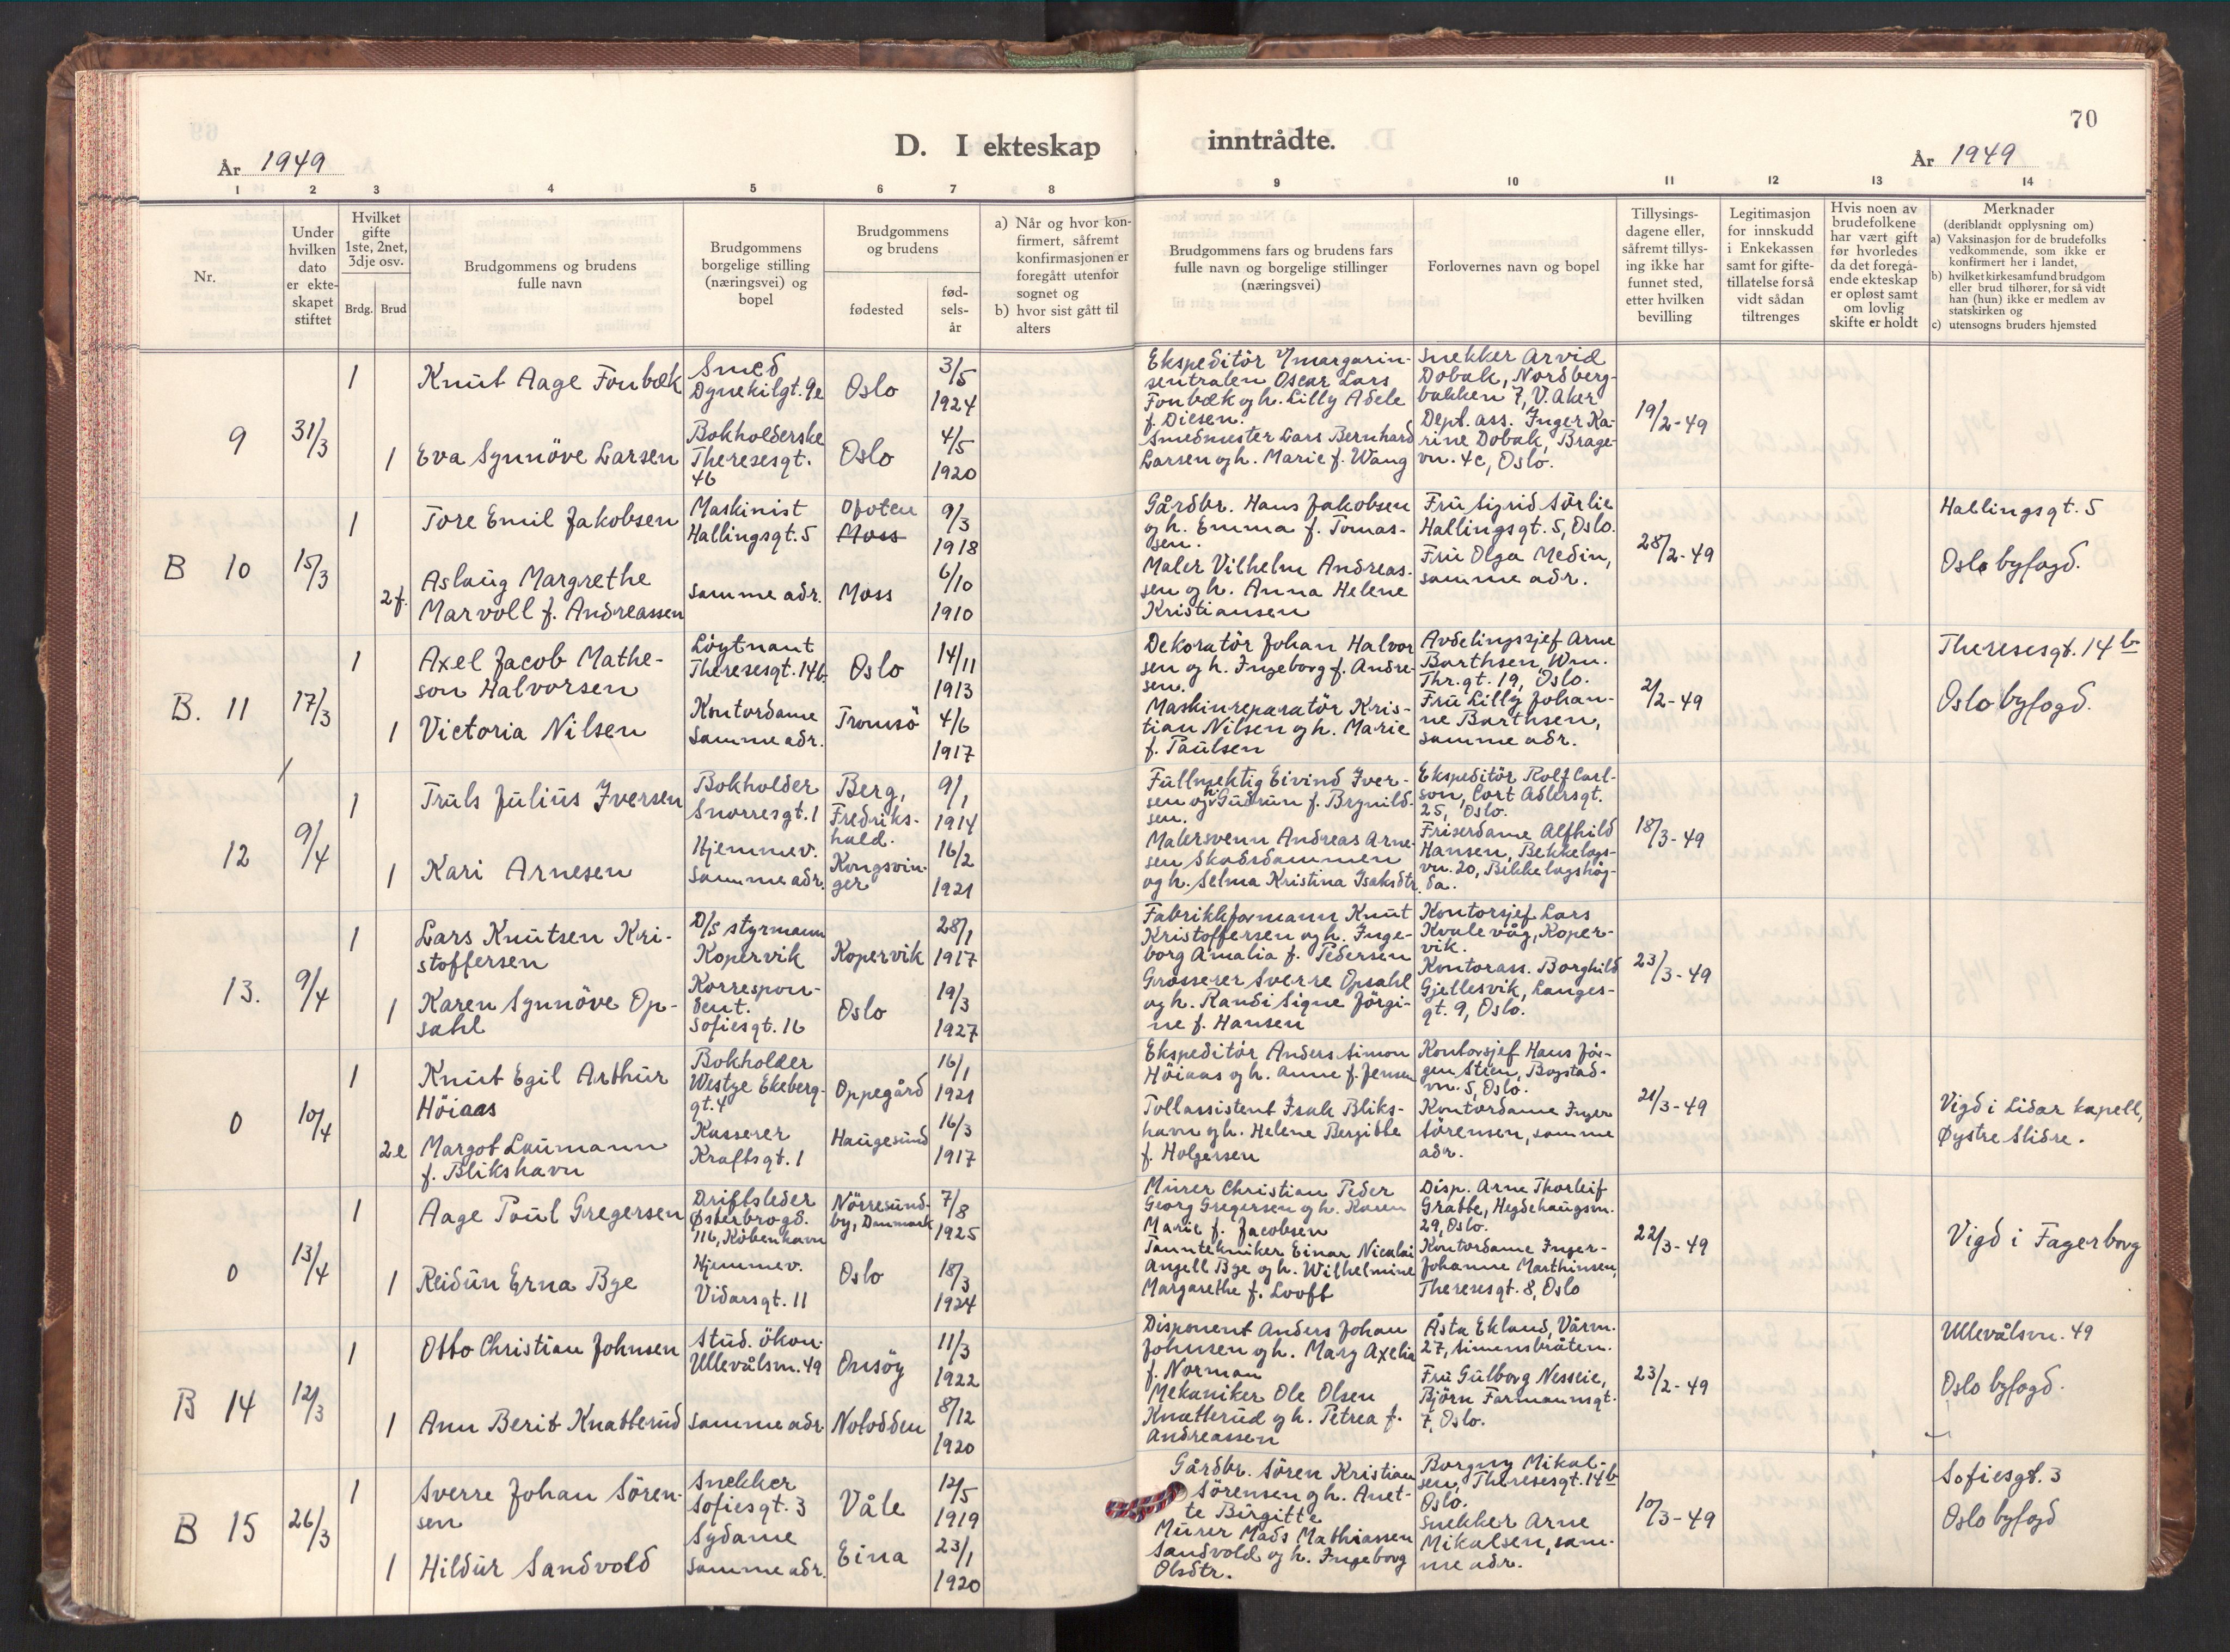 70
D. I ekteskap inntrådte.
År 1949
År 1949
1 2 3 4 5 6 7 8 9 10 11 12 13 14
Nr.
Under
hvilken
dato
er ekte-
skapet
stiftet
Hvilket
gifte
1ste, 2net,
3dje osv.
Brdg. Brud
Brudgommens og brudens
fulle navn
Brudgommens
borgelige stilling
(næringsvei) og
bopel
Brudgommens
og brudens
fødested
fød-
sels-
år
a) Når og hvor kon-
firmert, såfremt
konfirmasjonen er
foregått utenfor
sognet og
b) hvor sist gått til
alters
Brudgommens fars og brudens fars
fulle navn og borgelige stillinger
(næringsvei)
Forlovernes navn og bopel
Tillysings-
dagene eller,
såfremt tillys-
ing ikke har
funnet sted,
etter hvilken
bevilling
Legitimasjon
for innskudd
i Enkekassen
samt for gifte-
tillatelse for så
vidt sådan
tiltrenges
Hvis noen av
brudefolkene
har vært gift
før hvorledes
da det foregå-
ende ekteskap
er opløst samt
om lovlig
skifte er holdt
Merknader
(deriblandt opplysning om)
a) Vaksinasjon for de brudefolks
vedkommende, som ikke er
konfirmert her i landet,
b) hvilket kirkesamfund brudgom
eller brud tilhører, for så vidt
han (hun) ikke er medlem av
statskirken og
c) utensogns bruders hjemsted
9
31/3
1
Knut Aage Fonbæk
Smed
Dynekilgt. 9e
Oslo
3/5
1924
1
Eva Synnöve Larsen
Bokholderske
Theresesgt.
46
Oslo
4/5
1920
Ekspeditör v/margarin-
sentralen Oscar Lars
Fonbæk og h. Lilly Adele
f. Diesen.
Smedmester Lars Bernhard
Larsen og h. Marie f. Wang
Snekker Arvid
Dobak, Nordberg-
bakken 7, V. Aker
Dept. ass. Inger Ka-
rine Dobak, Brage-
vn. 4c, Oslo.
19/2-49
B 10
15/3
1
Tore Emil Jakobsen
Maskinist
Hallingsgt. 5
Ofoten
Moss
9/3
1918
2 f.
Aslaug Margrethe
Marvoll f. Andreassen
samme adr.
Moss
6/10
1910
Gårdbr. Hans Jakobsen
og h. Emma f. Tomas-
sen.
Maler Vilhelm Andreas-
sen og h. Anna Helene
Kristiansen
Fru Sigrid Sörlie
Hallingsgt. 5, Oslo.
Fru Olga Medin,
samme adr.
28/2-49
Hallingsgt. 5
Oslo byfogd.
B. 11
17/3
1
Axel Jacob Mathe-
son Halvorsen
Löytnant
Theresesgt. 14b
Oslo
14/11
1913
1
Victoria Nilsen
Kontordame
samme adr.
Tromsö
4/6
1917
Dekoratör Johan Halvor
sen og h. Ingeborg f. Andre-
sen.
Maskinreparatör Kris-
tian Nilsen og h. Marie
f. Paulsen
Avdelingssjef Arne
Barthsen, Wm.
Thr. gt. 19, Oslo.
Fru Lilly Johan-
ne Barthsen,
samme adr.
2/2-49
Theresesgt. 14b
Oslo byfogd.
12
9/4
1
Truls Julius Iversen
Bokholder
Snorresgt. 1
Berg,
Fredriks-
hald.
9/1
1914
1
Kari Arnesen
Hjemmev.
samme adr.
Kongsvin-
ger
16/2
1921
Fullmektig Eivind Iver-
sen og h. Gudrun f. Brynild-
sen.
Malersvenn Andreas Arne-
sen Skadsdammen
og h. Selma Kristina Isaksdtr.
Ekspeditör Rolf Carl-
son, Cort Adlersgt.
25, Oslo.
Friserdame Alfhild
Hansen, Bekkelags-
vn. 20, Bekkelagshög-
da.
18/3-49
13.
9/4
1
Lars Knutsen Kri-
stoffersen
D/S styrmann
Kopervik
Kopervik
28/1
1917
1
Karen Synnöve Op-
sahl
Korrespon-
dent.
Sofiesgt. 16
Oslo
19/3
1927
Fabrikkformann Knut
Kristoffersen og h. Inge-
borg Amalia f. Pedersen
Grosserer Sverre Opsahl
og h. Randi Signe Jörgi-
ne f. Hansen
Kontorsjef Lars
Kvalevåg, Koper-
vik.
Kontorass. Borghild
Gjellesvik, Langes-
gt. 9, Oslo.
23/3-49
0
10/4
1
Knut Egil Arthur
Höiaas
Bokholder
Westye Ekeberg-
gt. 4
Oppegård
16/1
1921
2 e
Margot Laumann
f. Blikshavn
Kasserer
Kraftsgt. 1
Haugesund
16/3
1917
Ekspeditör Anders Simon
Höiaas og h. Anne f. Jensen
Tollassistent Isak Bliks-
havn og h. Helene Bergitte
f. Holgersen
Kontorsjef Hans Jör-
gen Stien, Bogstad-
vn. 5, Oslo.
Kontordame Inger
Sörensen, samme
adr.
21/3-49
Vigd i Lidar kapell,
Øystre Slidre.
0
13/4
1
Aage Poul Gregersen
Driftsleder
Østerbrogd.
116, København
Nörresund-
by, Danmark
7/8
1925
1
Reidun Erna Bye
Hjemmev.
Vidarsgt. 11
Oslo
18/3
1924
Murer Christian Peder
Georg Gregersen og h. Karen
Marie f. Jacobsen
Tanntekniker Einar Nicolai
Angell Bye og h. Wilhelmine
Margarethe f. Looft
Disp. Arne Thorleif
Grabbe, Hegdehaugsvn.
29, Oslo.
Kontordame Inger-
Johanne Marthinsen,
Theresesgt. 8, Oslo
22/3-49
Vigd i Fagerborg
B 14
12/3
1
Otto Christian Johnsen
Stud. ökon.
Ullevålsvn. 49
Onsöy
11/3
1922
1
Ann Berit Knatterud
samme adr.
Notodden
8/12
1920
Disponent Anders Johan
Johnsen og h. Mary Axelia
f. Norman
Mekaniker Ole Olsen
Knatterud og h. Petrea f.
Andreassen
Åsta Eklund, Vårvn.
27, Simensbråten.
Fru Gulborg Nesseie,
Björn Farmannsgt.
7, Oslo.
23/2-49
Ullevålsvn. 49
Oslo byfogd.
B 15
26/3
1
Sverre Johan Sören-
sen
Snekker
Sofiesgt. 3
Våle
12/5
1919
1
Hildur Sandvold
Sydame
samme adr.
Eina
23/1
1920
Gårdbr. Sören Kristian
Sörensen og h. Anet-
te Birgitte
Murer Mads Mathiassen
Sandvold og h. Ingeborg
Olsdtr.
Borgny Mikal-
sen, Theresesgt. 14b
Oslo.
Snekker Arne
Mikalsen, sam-
me adr.
10/3-49
Sofiesgt. 3
Oslo byfogd